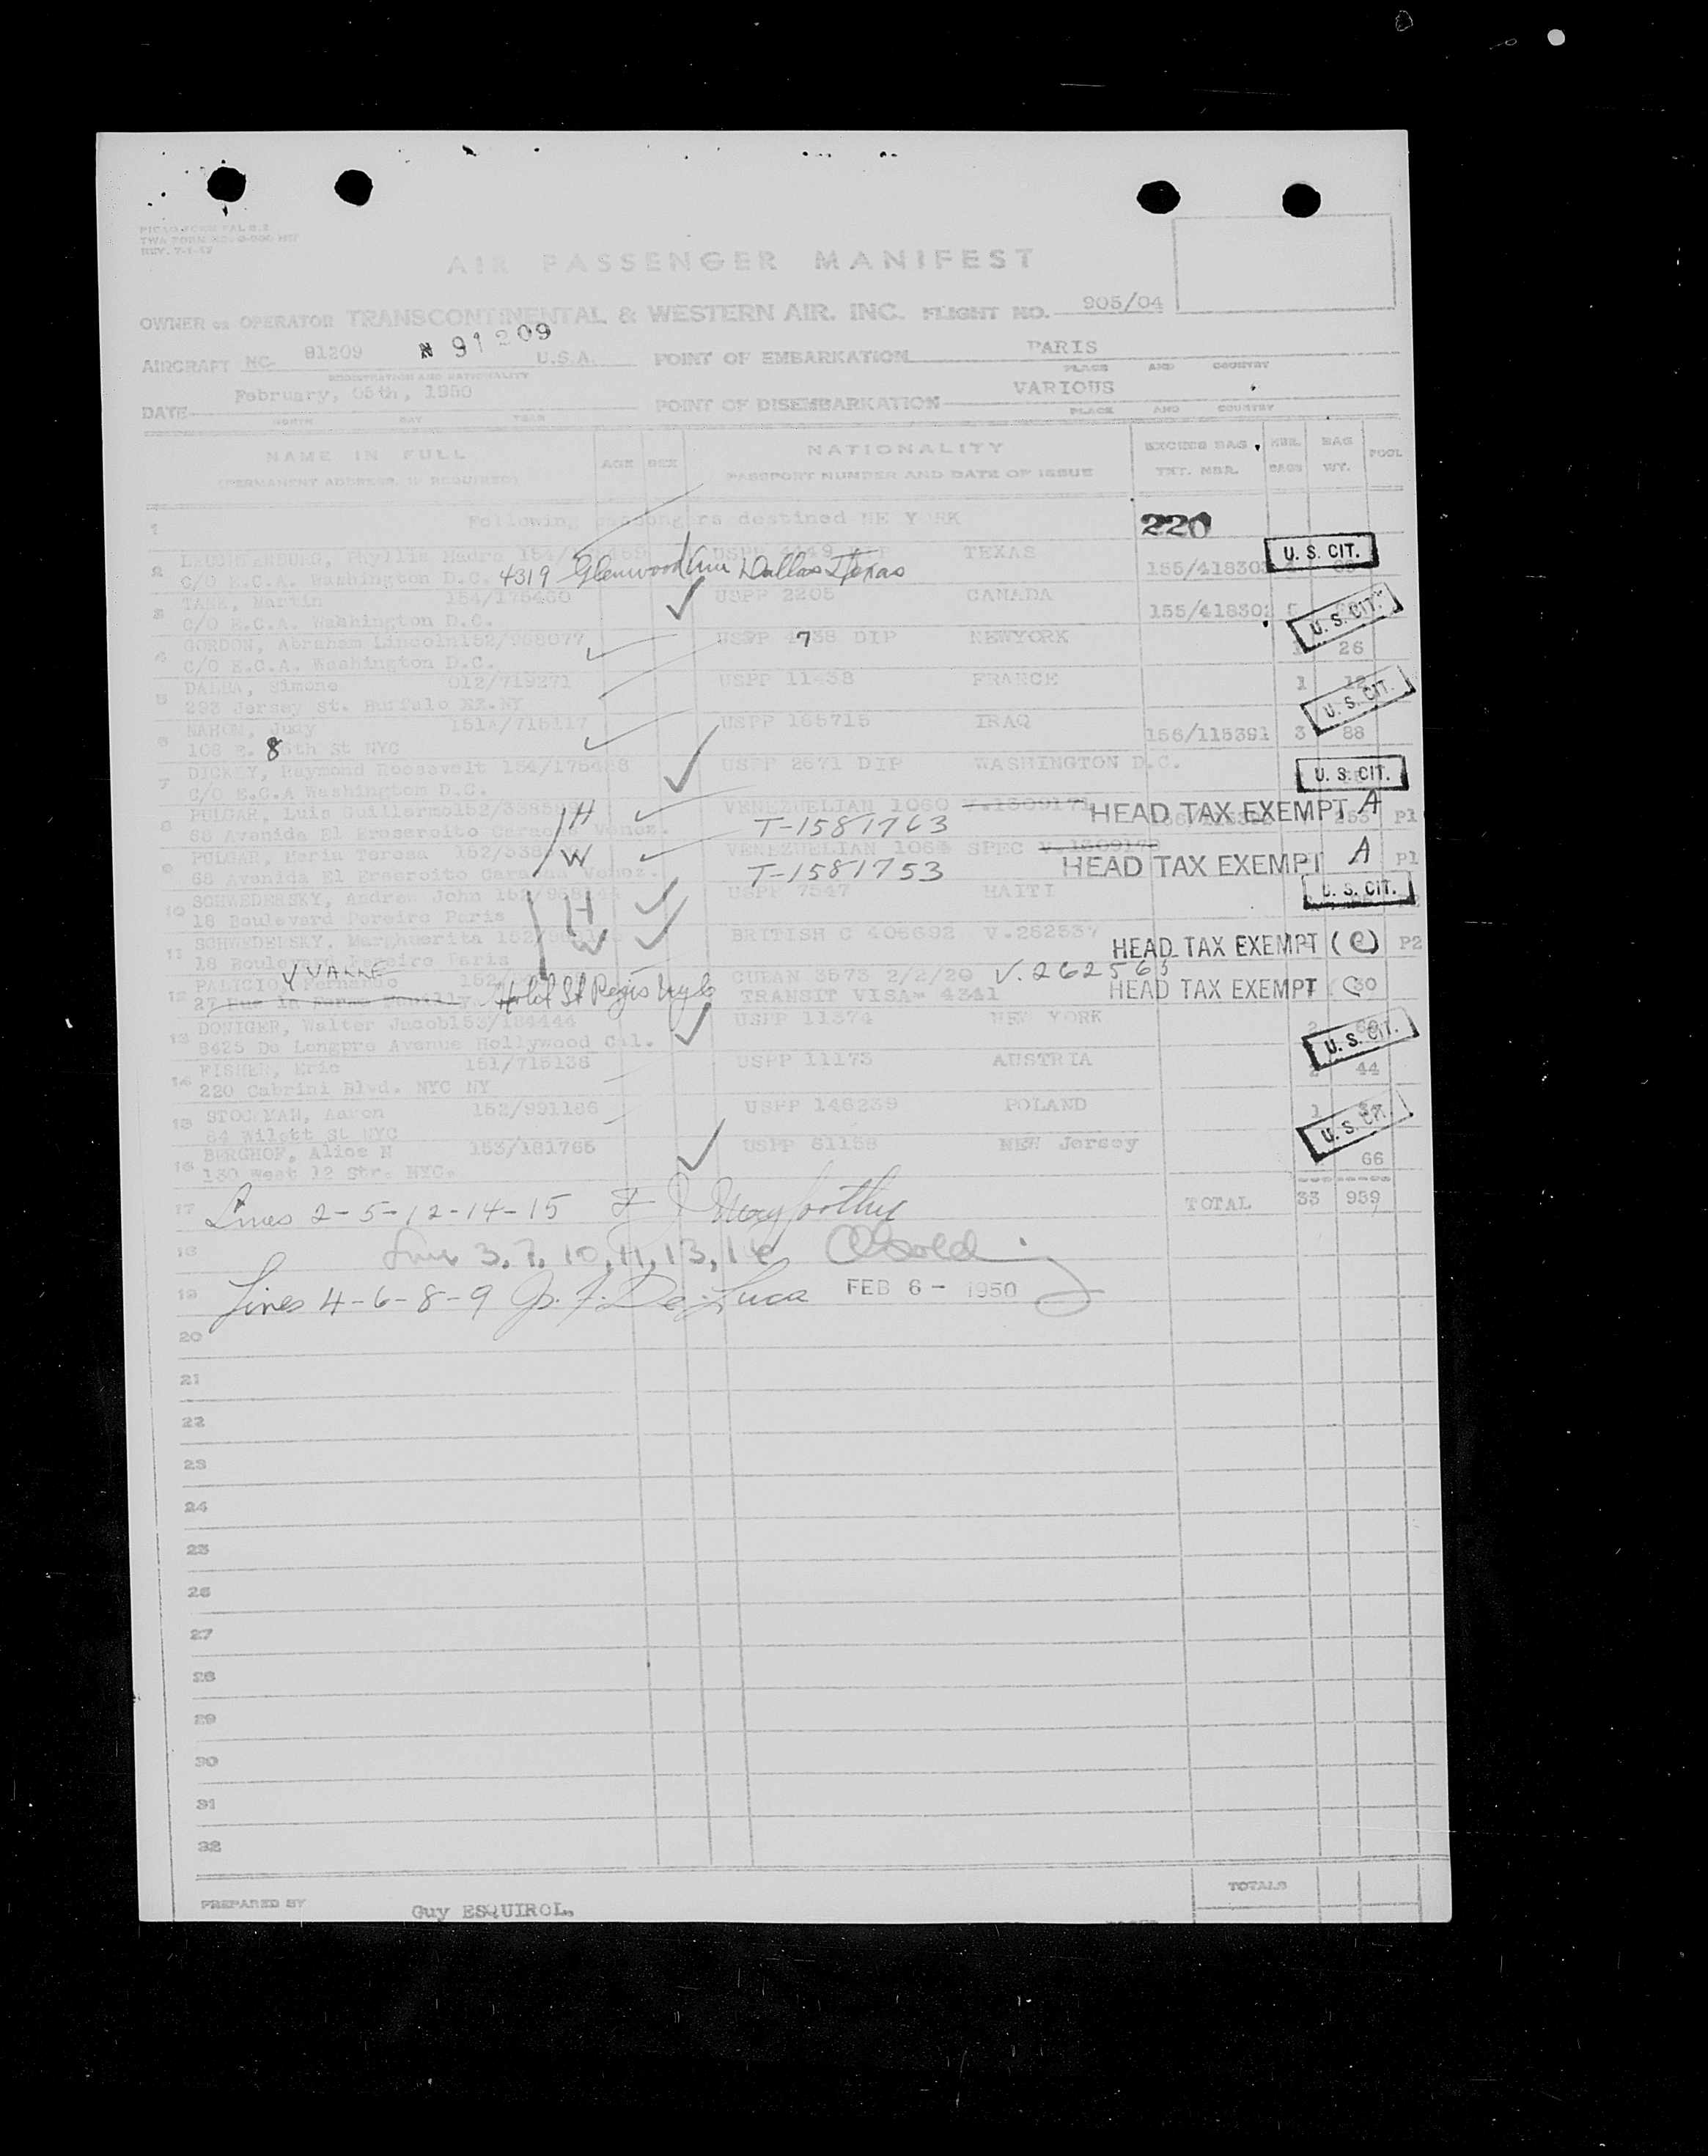 AIR PASSENGER MANIFEST
OWNER OR OPERATOR TRANSCONTINENTAL & WESTERN AIR. INC. FLIGHT NO. 905/04
AIRCRAFT NC- 91209 N 91209 U.S.A. POINT OF EMBARKATION PARIS
REGISTRATION AND NATIONALITY PLACE AND COUNTRY
DATE February, 05th, 1950 POINT OF DISEMBARKATION VARIOUS
MONTH DAY YEAR PLACE AND COUNTRY
NAME IN FULL AGE SEX NATIONALITY EXCESS BAG. NBR. BAG POOL
(PERMANENT ADDRESS, IF REQUIRED) PASSPORT NUMBER AND DATE OF ISSUE TKT. NBR. BAGS WT.
1 Following passengers destined NEW YORK 220
2 Phyllis USPP TEXAS U. S. CIT.
C/O E.C.A. Washington D.C. 4319 Glenwood Ave Dallas Texas
3 Martin 154/175460 USPP 2205 CANADA 155/418302 5
C/O E.C.A. Washington D.C. U. S. CIT.
4 GORDON, Abraham Lincoln 152/958077 USPP 4738 DIP NEWYORK
C/O E.C.A. Washington D.C. 26
5 DALBA, Simone 012/719271 USPP 11438 FRANCE 1
293 Jersey St. Buffalo NY U. S. CIT.
6 NAHOM, Judy 151A/715117 USPP 165715 IRAQ 156/115391 3 88
108 E. 86th St NYC
7 DICKEY, Raymond Roosevelt 154/175468 USPP 2571 DIP WASHINGTON D.C. U. S. CIT.
C/O E.C.A Washington D.C.
8 PULGAR, Luis Guillermo 152/ H VENEZUELIAN 1060 V.1609171 HEAD TAX EXEMPT A P1
68 Avenida El Ersercito Caracas Venez. T-1581763
9 PULGAR, Maria Teresa 152/ W VENEZUELIAN 1064 SPEC HEAD TAX EXEMPT A P1
68 Avenida El Ersercito Caracas Venez. T-1581753
10 SCHWEDERSKY, Andrew John H USPP 7547 HAITI U. S. CIT.
18 Boulevard Pereire Paris
11 SCHWEDERSKY, Marghuerita W BRITISH C 405692 V.262537 HEAD TAX EXEMPT (C) P2
18 Boulevard Pereire Paris
12 PALICIO Y Fernando CUBAN 3573 2/2/20 V. 262563
27 Rue la Ferme Hotel St Regis TRANSIT VISA 4341 HEAD TAX EXEMPT C 30
13 DONIGER, Walter Jacob 153/184444 USPP 11374 NEW YORK 2
8425 De Longpre Avenue Hollywood Cal. U. S. CIT.
14 FISHER, Eric 151/715136 USPP 11173 AUSTRIA 2 44
220 Cabrini Blvd. NYC NY
15 Aaron 152/991186 USPP 146239 POLAND 1
84 Wilett St NYC U. S. CIT.
16 BERGHOF, Alice N 153/181765 USPP 81158 NEW Jersey
130 West 12 Str. NYC. 66
17 Lines 2-5-12-14-15 TOTAL 33 939
18 Lines 3, 7, 10, 11, 13, 16
19 Lines 4-6-8-9 De Luca FEB 6 - 1950
20
21
22
23
24
25
26
27
28
29
30
31
32
TOTALS
PREPARED BY Guy ESQUIROL.